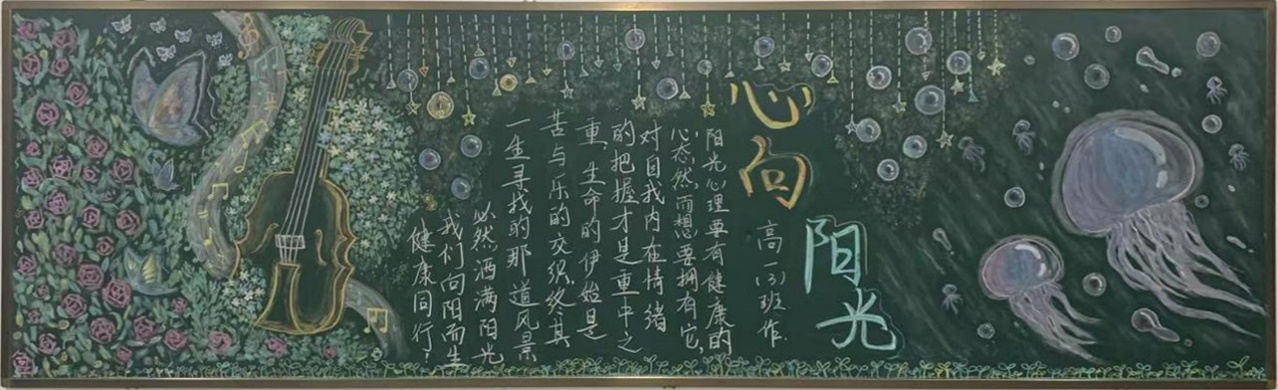 心向
阳光
高一(3)班作
阳光心理要有健康的
心态,然而想要拥有它
对自我内在情绪
的把握才是重中之
重,生命的伊始是
苦与乐的交织,终其
一生寻找的那一道风景
必然洒满阳光
我们向阳而生
健康同行!